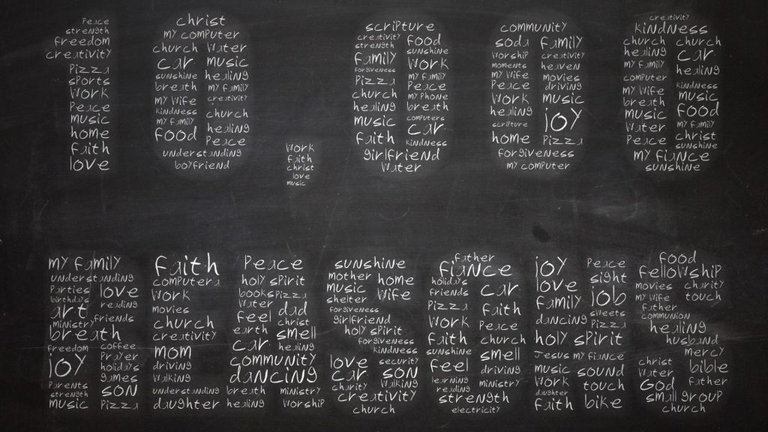 Peace
strength
freedom
creativity
Pizza
sports
Work
Peace
music
home
faith
love
christ
my computer
church Water
car music
sunshine healing
breath my family
my wife creativity
kindness church
my family healing
food Peace
understanding
boyfriend
Work
faith
christ
love
music
scripture
creativity food
strength sunshine
family Work
forgiveness my family
Pizza Peace
church my phone
healing breath
music computers
car
faith kindness
girlfriend
Water
community
soda family
Worship creativity
moments heaven
my wife movies
Peace driving
Work music
healing joy
scripture
home Pizza
forgiveness
my computer
creativity
kindness
church church
healing car
my family healing
computer
my wife my family
breath music
music food
Water my family
Peace christ
sunshine
my fiance
sunshine
my family
understanding
Parties love
birthdays reading
art friends
ministry
breath
freedom coffee
joy Prayer
holidays
games
Parents son
strength
music Pizza
faith
computers
Work
movies
church
creativity
mom
driving
walking
understanding
daughter
Peace
holy spirit
books Pizza
Water dad
feel christ
earth smell
car healing
community
dancing
breath ministry
healing Worship
sunshine
mother home
music Wife
shelter
forgiveness
girlfriend
holy spirit
forgiveness
kindness
love security
car son
charity Walking
creativity
church
father
fiance
holidays car
friends
Pizza faith
Work Peace
faith church
sunshine smell
feel driving
learning ministry
reading
strength
electricity
joy Peace
love sight
family job
sweets
dancing Pizza
holy spirit
Jesus my fiance
music sound
Work touch
daughter
faith bike
food
fellowship
movies charity
my wife touch
father
communion
healing
husband
mercy
christ bible
Water
God father
small group
church